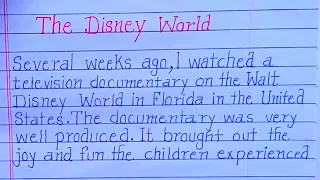 The Disney World
Several weeks ago, I watched a
television documentary on the Walt
Disney World in Florida in the United
States. The documentary was very
well produced. It brought out the
joy and fun the children experienced